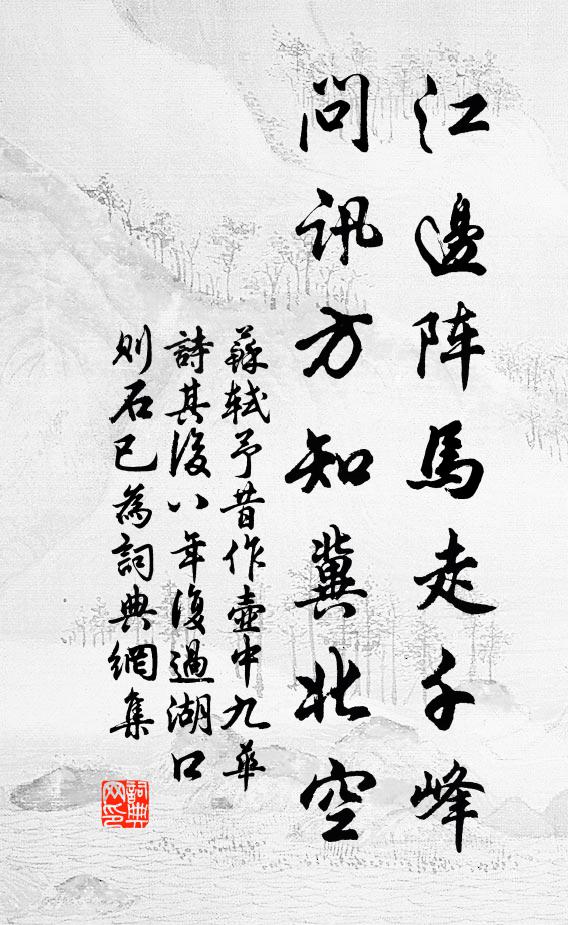 江邊阵馬走千峰
問訊方知冀北空
蘇軾予昔作壺中九華
詩其後八年復過湖口
則石已為詞典網集
詞典
网印